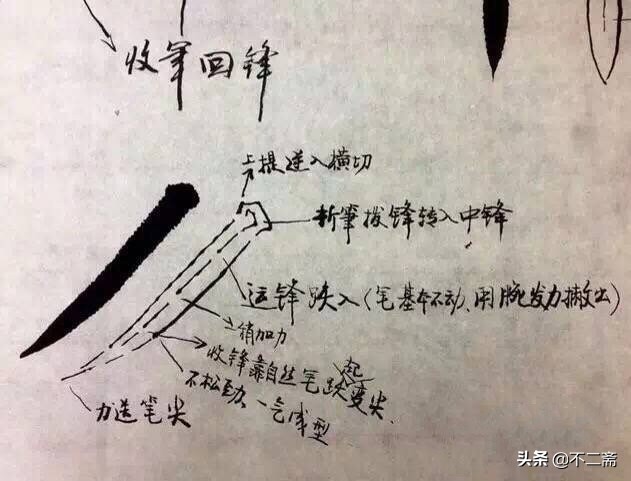 收笔回锋
上提逆入横切
折筆拨锋转入中锋
运锋跌入(笔基本不动、用腕发力撇出)
稍加力
收锋靠自然笔跌起变尖
不松劲、一气成型
力送笔尖
头条 @不二斋